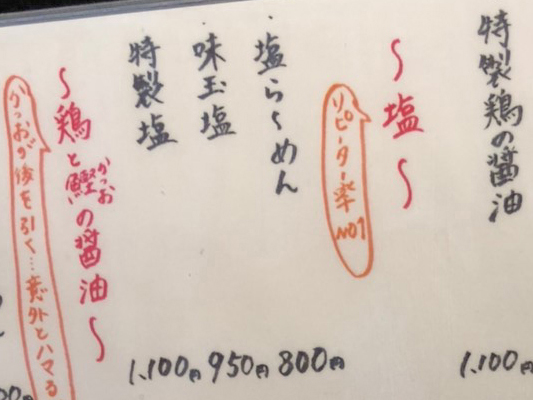 特製鶏の醤油
1,100円
〜塩〜
リピーター率NO1
塩らーめん
800円
味玉塩
950円
特製塩
1,100円
〜鶏と鰹の醤油〜
かつお
かつおが後を引く…意外とハマる
00円